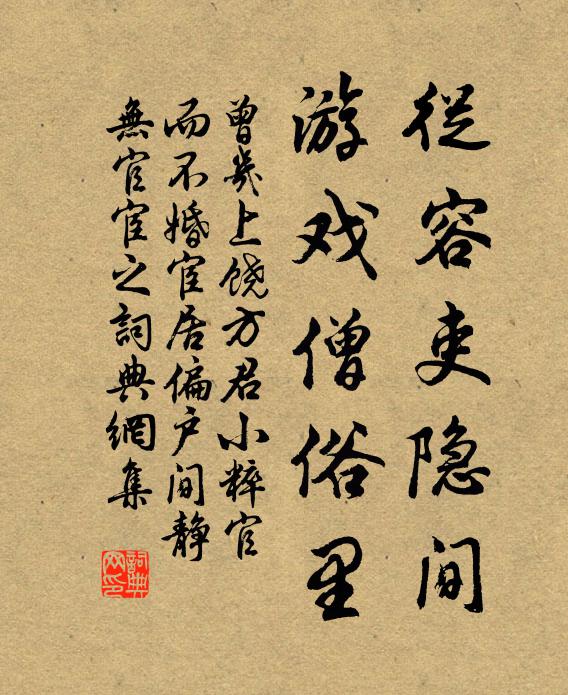 從容吏隐间
游戏僧俗里
曾幾上饶方君小粹官
而不婚宦居偏户间静
無官宦之詞典網集
詞典网印